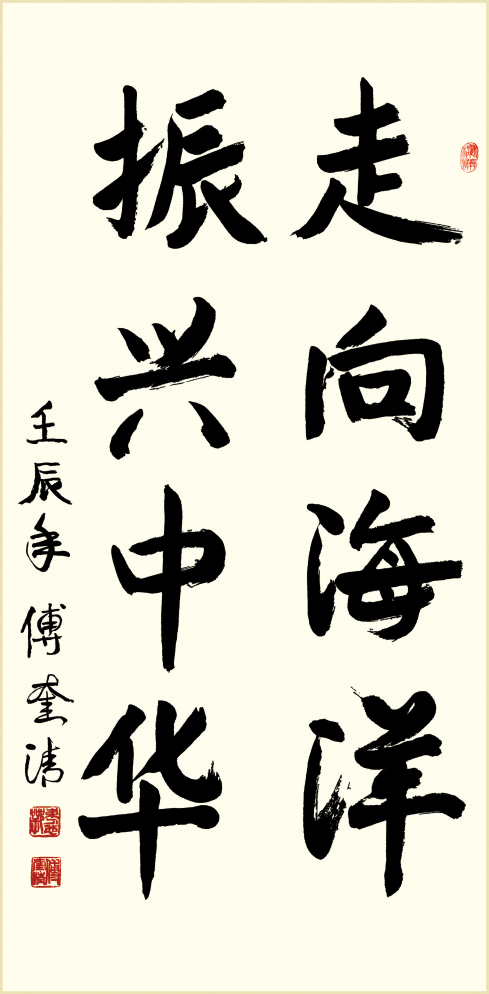 走向海洋
振兴中华
壬辰年 傅奎清